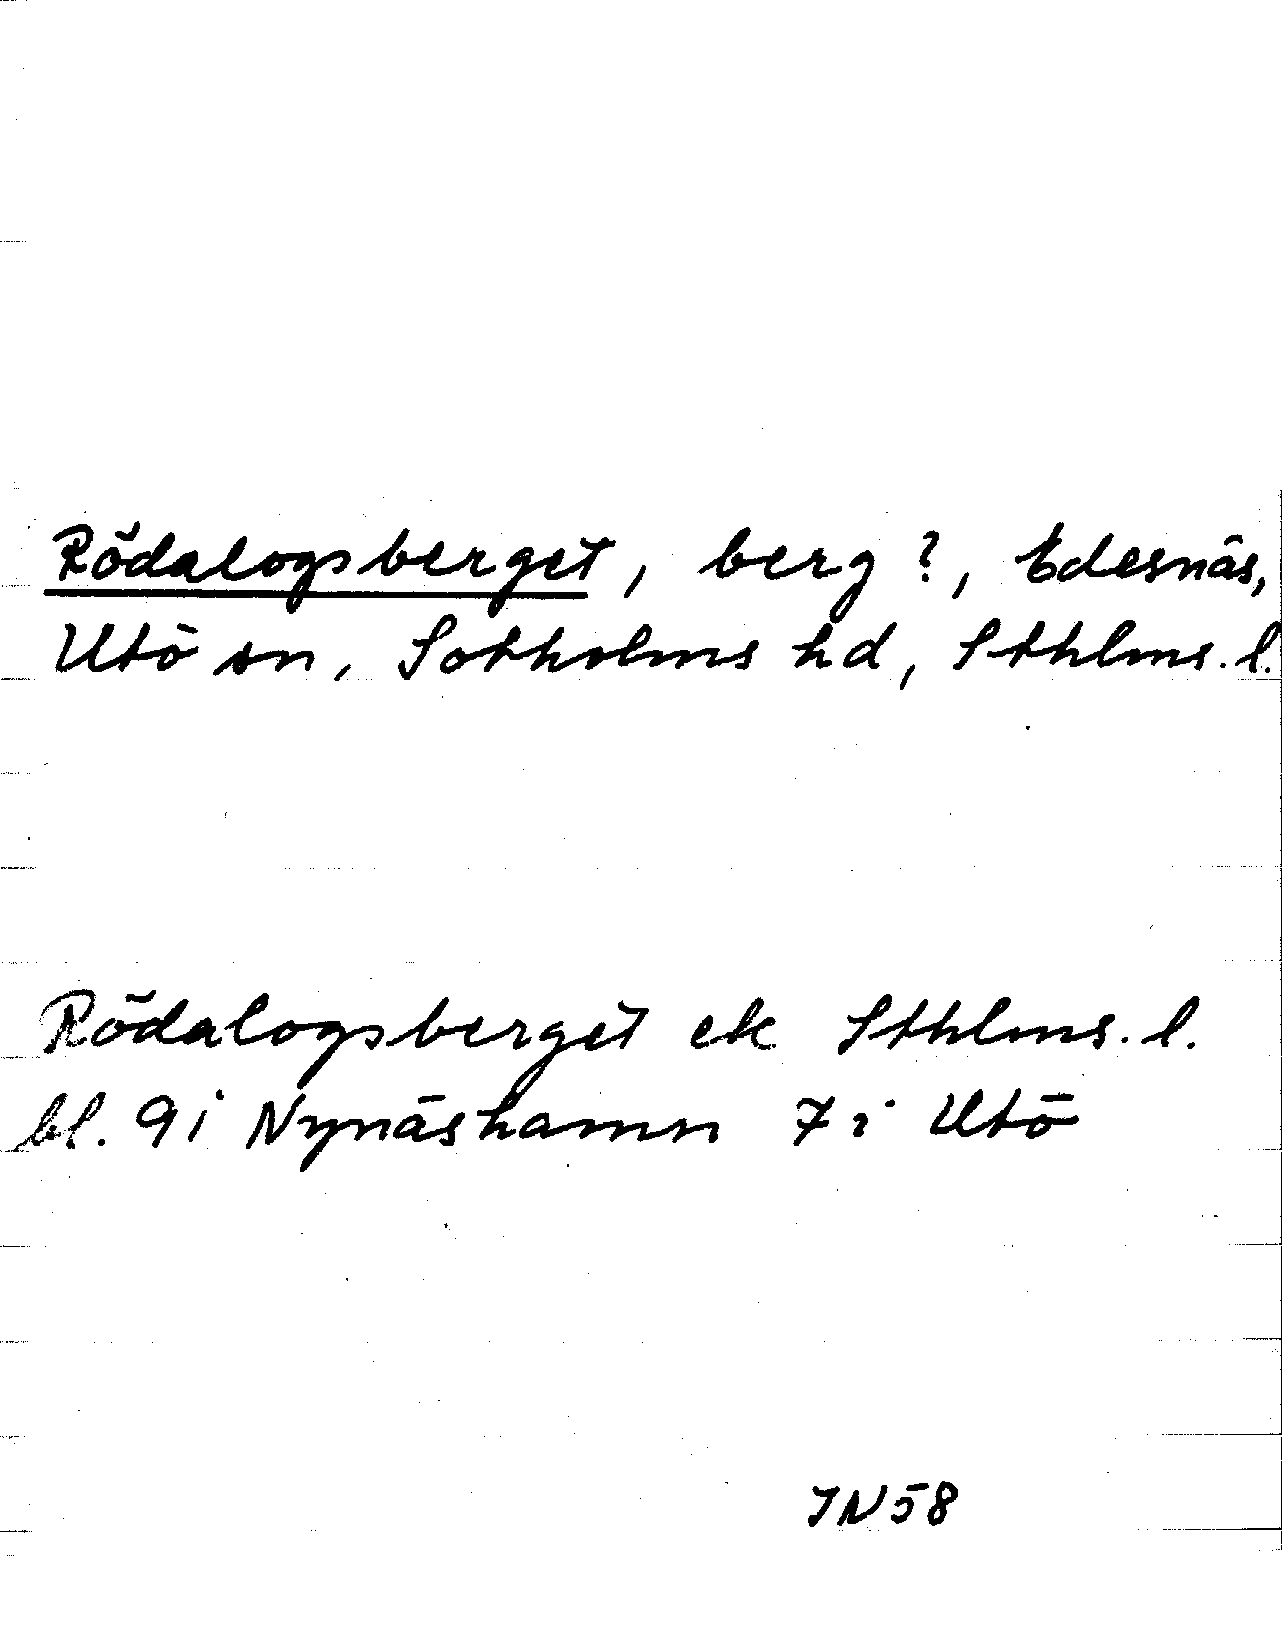 Rödalogsberget, berg?, Edesnäs,
Utö sn, Sotholms hd, Sthlms. l.
Rödalogsberget ek Sthlms. l.
bl. 9i Nynäshamn 7i Utö
IN58